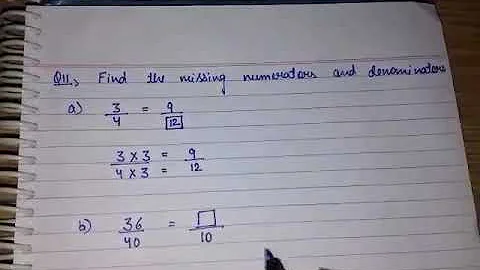 Q11, Find the missing numerators and denominators
a) 3/4 = 9/12
3 x 3 / 4 x 3 = 9/12
b) 36/40 = □/10